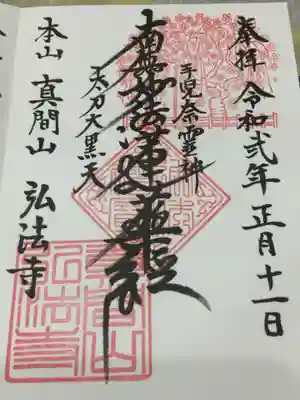 奉拝 令和弐年 正月十一日
手児奈霊神
南無妙法蓮華経
太刀大黒天
本山 真間山 弘法寺